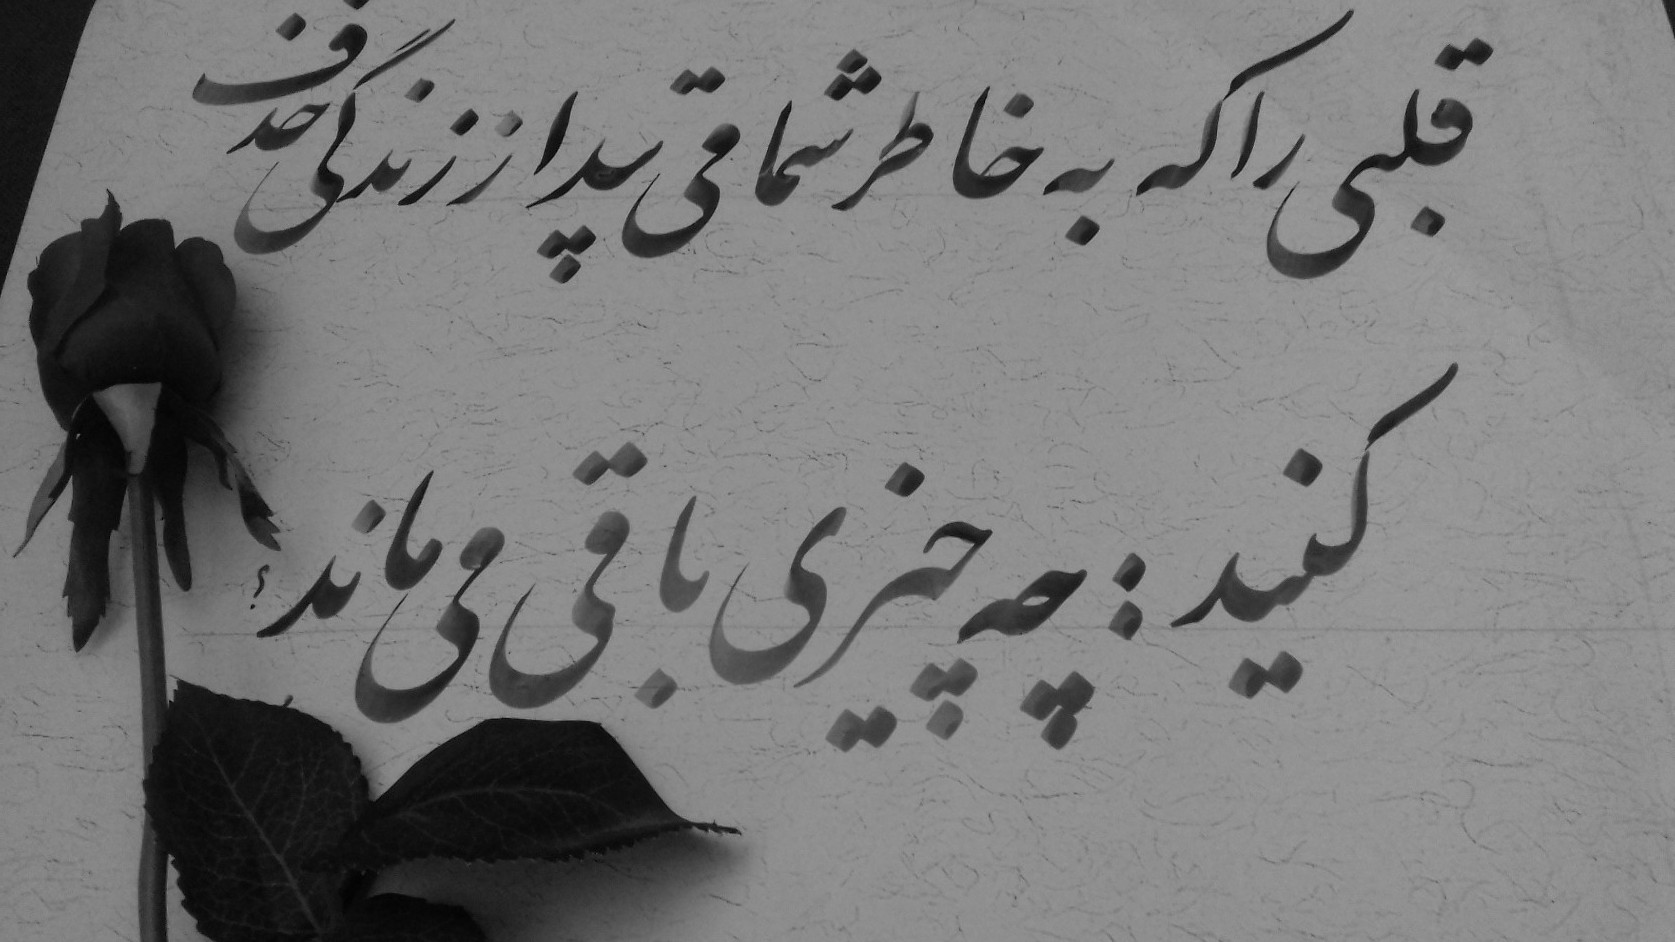 قلبی را که به خاطر شما می تپد از زندگی حذف
کنید : چه چیزی باقی می ماند ؟